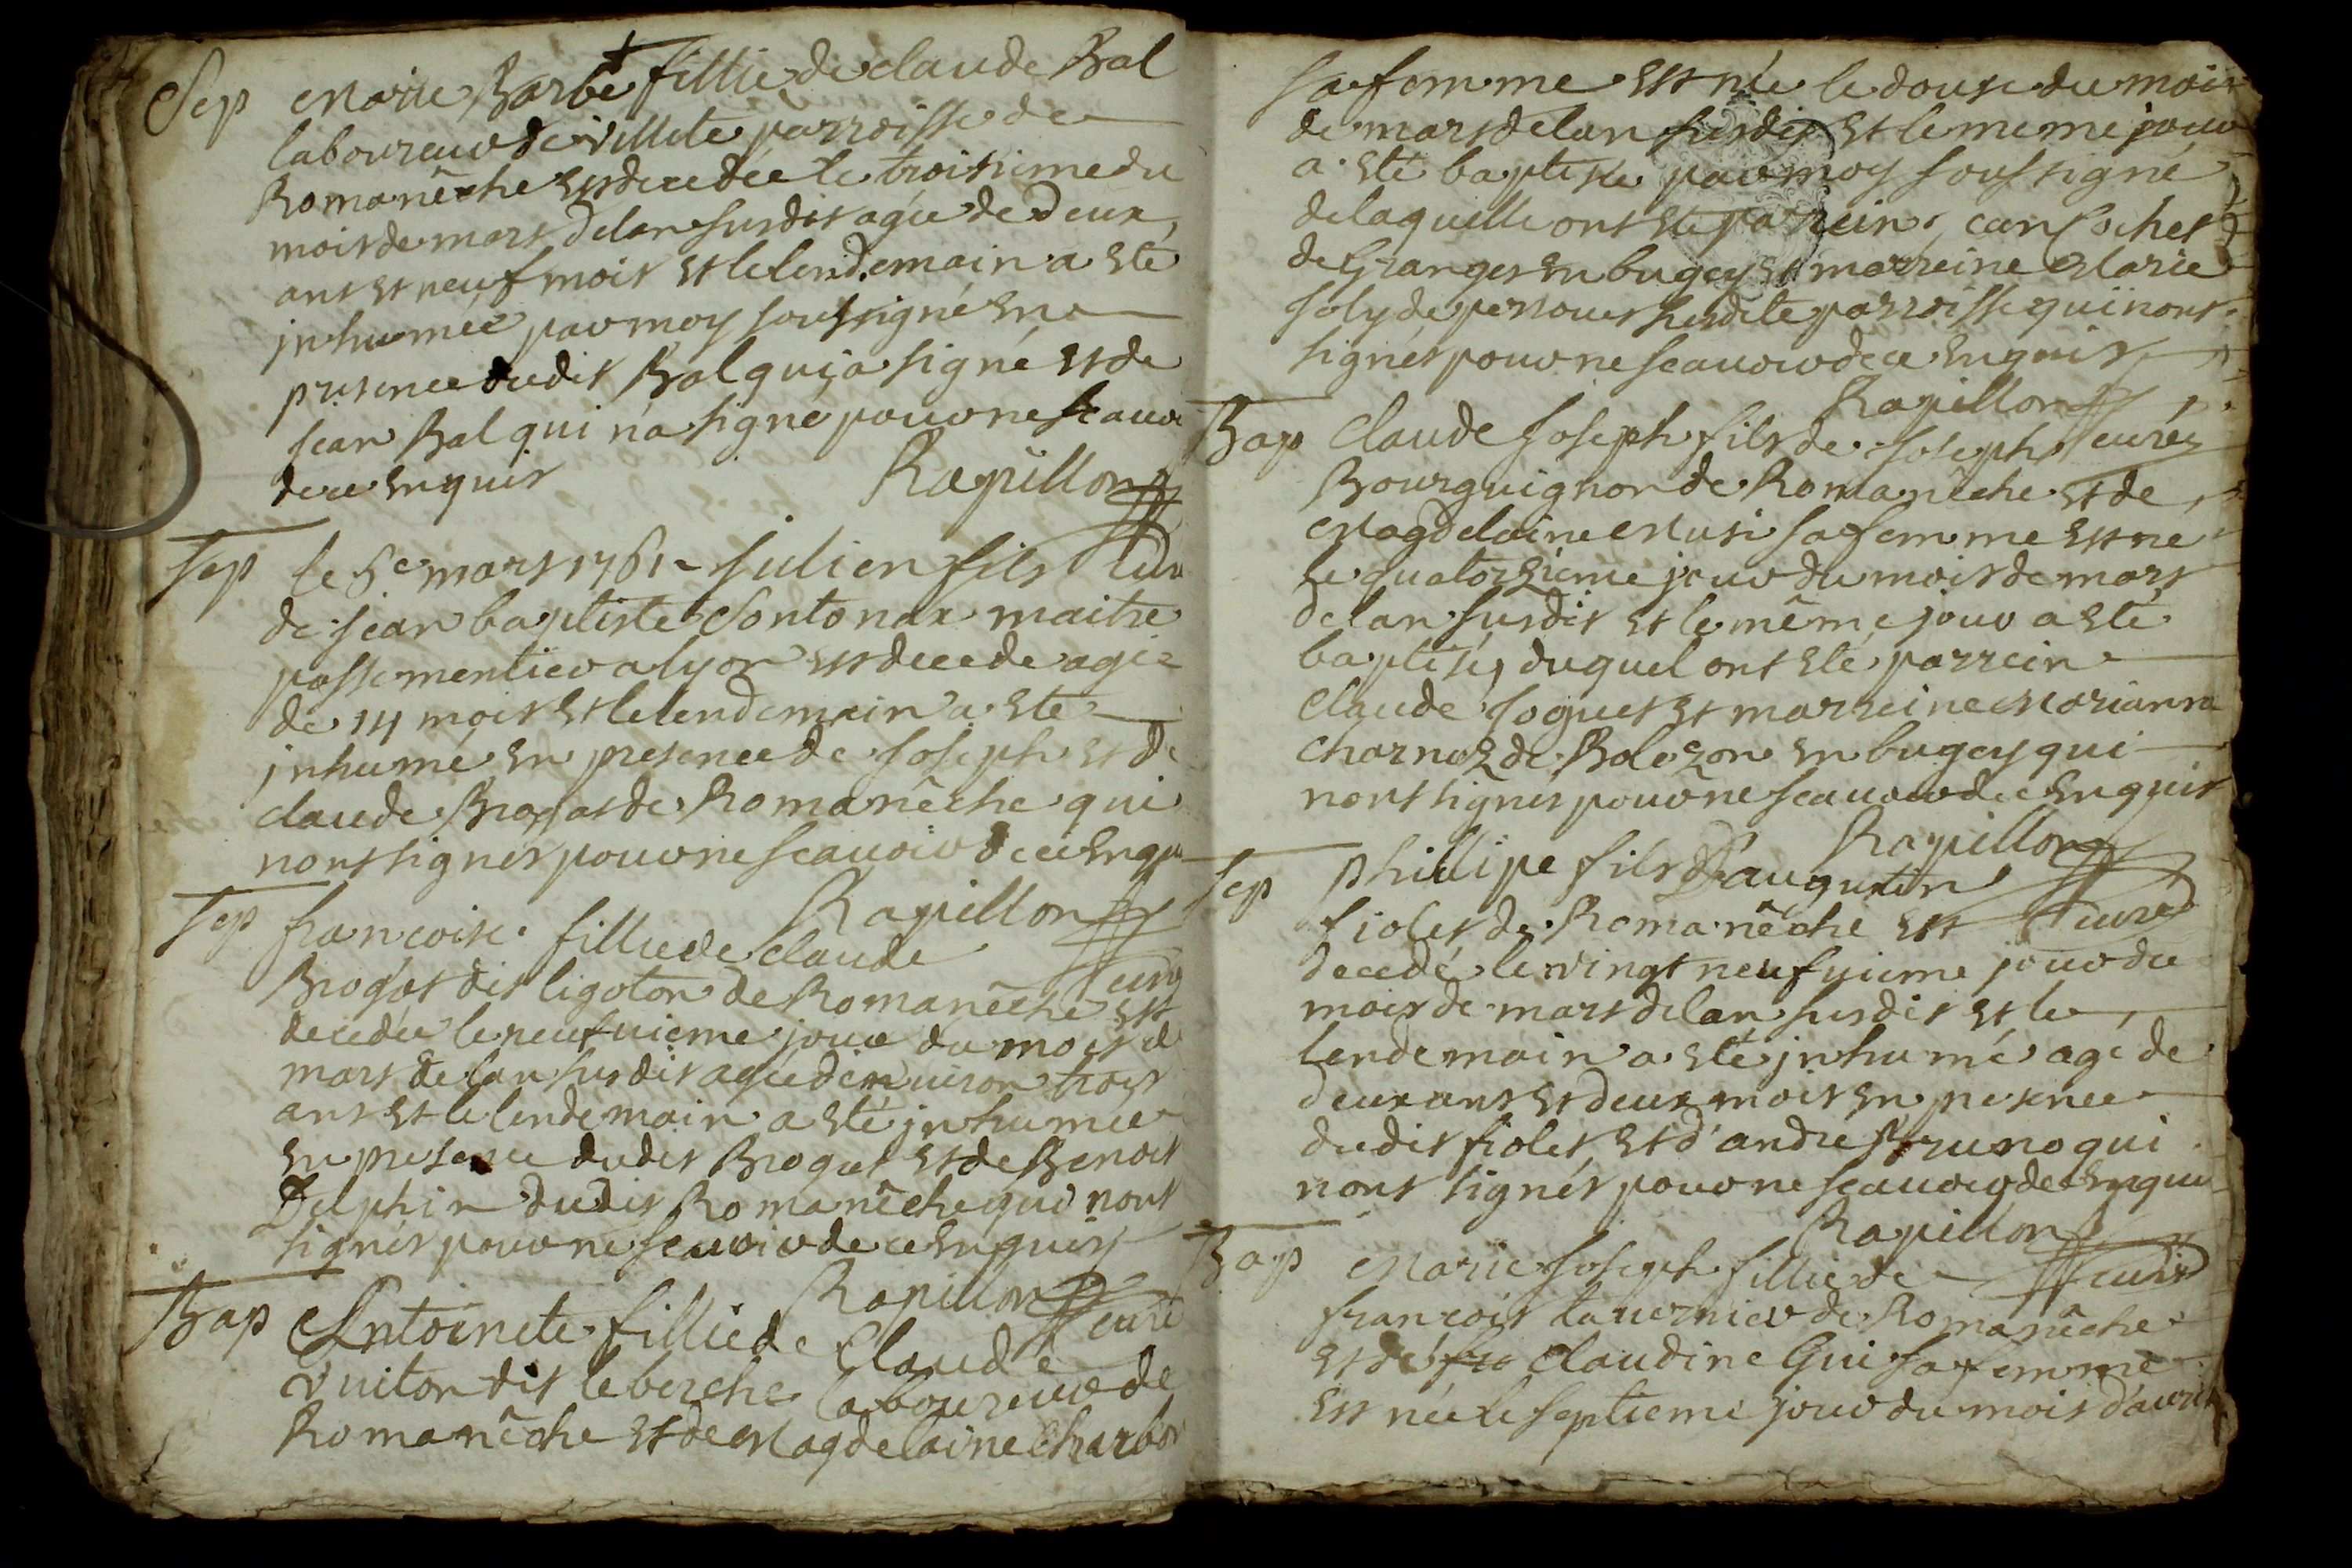 Sep Marie Barbe fillie de claude Bal
laboureur de villete parroisse de
Romanêche est decedée le troisieme du
mois de mars de lan susdit agée de deux
ans et neuf mois et le lendemain a eté
inhumée par moy soussigné en
presence dudit Bal qui ja signé et de
jean Bal qui na signé pour ne scauoi
de ce enquis Rapillon
curé
Sep le 5e mars 1761 Julien fils
de jean baptiste Sontonax maitre
passementier a lyon est decede agé
de 14 mois et le lendemain a eté
inhumé en presence de joseph et de
claude Brogat de Romanêche qui
nont signés pour ne scauoir de ce enqu
Rapillon
curé
Sep francoise fillie de claude
Brogat dit ligoton de Romanêche est
decedée le neufuieme jour du mois d
mars de lan susdit agée denuiron trois
ans et le lendemain a eté inhumée
en presence dudit Brogat et de Benoit
Delphin dudit Romanêche qui nont
signés pour ne scauoir de ce enquis
Rapillon
curé
Bap Antoinete fillie de Claude
Vuiton dit leberche laboureur de
Romanêche et de Magdelaine Charbon
sa femme est née le douse du mois
de mars de lan susdit et le meme jour
a eté baptisée par moy soussigné
de laquelle ont eté parrein jean Cochet
de Granges en bugey et marreine Marie
joly de perrouet susdite parroisse qui nont
signés pour ne scauoir de ce enquis
Rapillon
curéz
Bap Claude joseph fils de joseph
Bourguignon de Romanêche et de
Magdelaine Musi sa femme est ne
le quatorsieme jour du mois de mars
de lan susdit et le même jour a eté
baptisé, duquel ont eté parrein
Claude joguet et marreine Marianna
charnoz de Bolozon en bugey qui
nont signés pour ne scauoir de ce enquis
Rapillon
curé
Sep phillipe fils D'augustin
fiolet de Romanêche est
decedé le vingt neufyieme jour du
mois de mars de lan susdit et le
lendemain a eté inhumé age de
deux ans et deux mois en presence
dudit fiolet et d'andre Bruno qui
nont signés pour ne scauoir de ce enquis
Rapillon
curé
Bap Marie joseph fillie de
francois tauernier de Romanêche
et de Claudine Gui sa femme
est née le septieme jour du mois d'auril